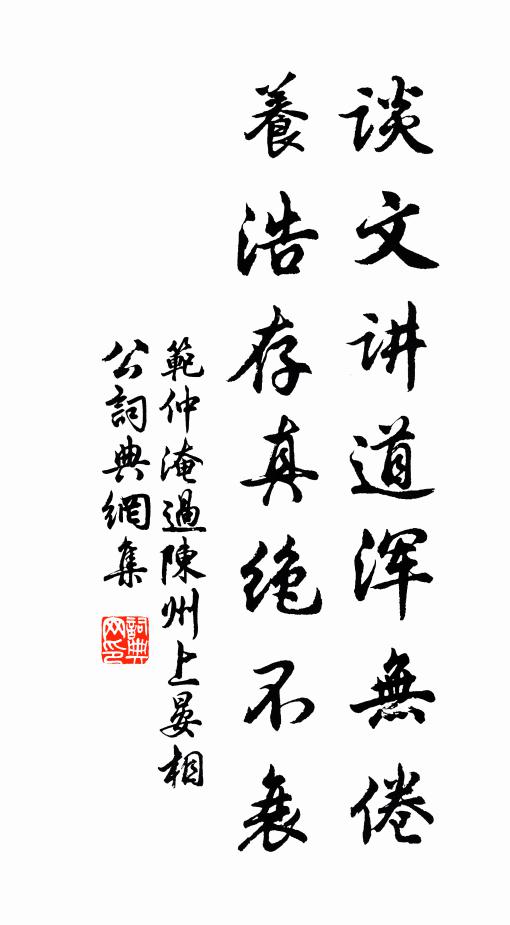 谈文讲道浑無倦
養浩存真绝不衰
範仲淹過陳州上晏相
公詞典網集
詞典
网印